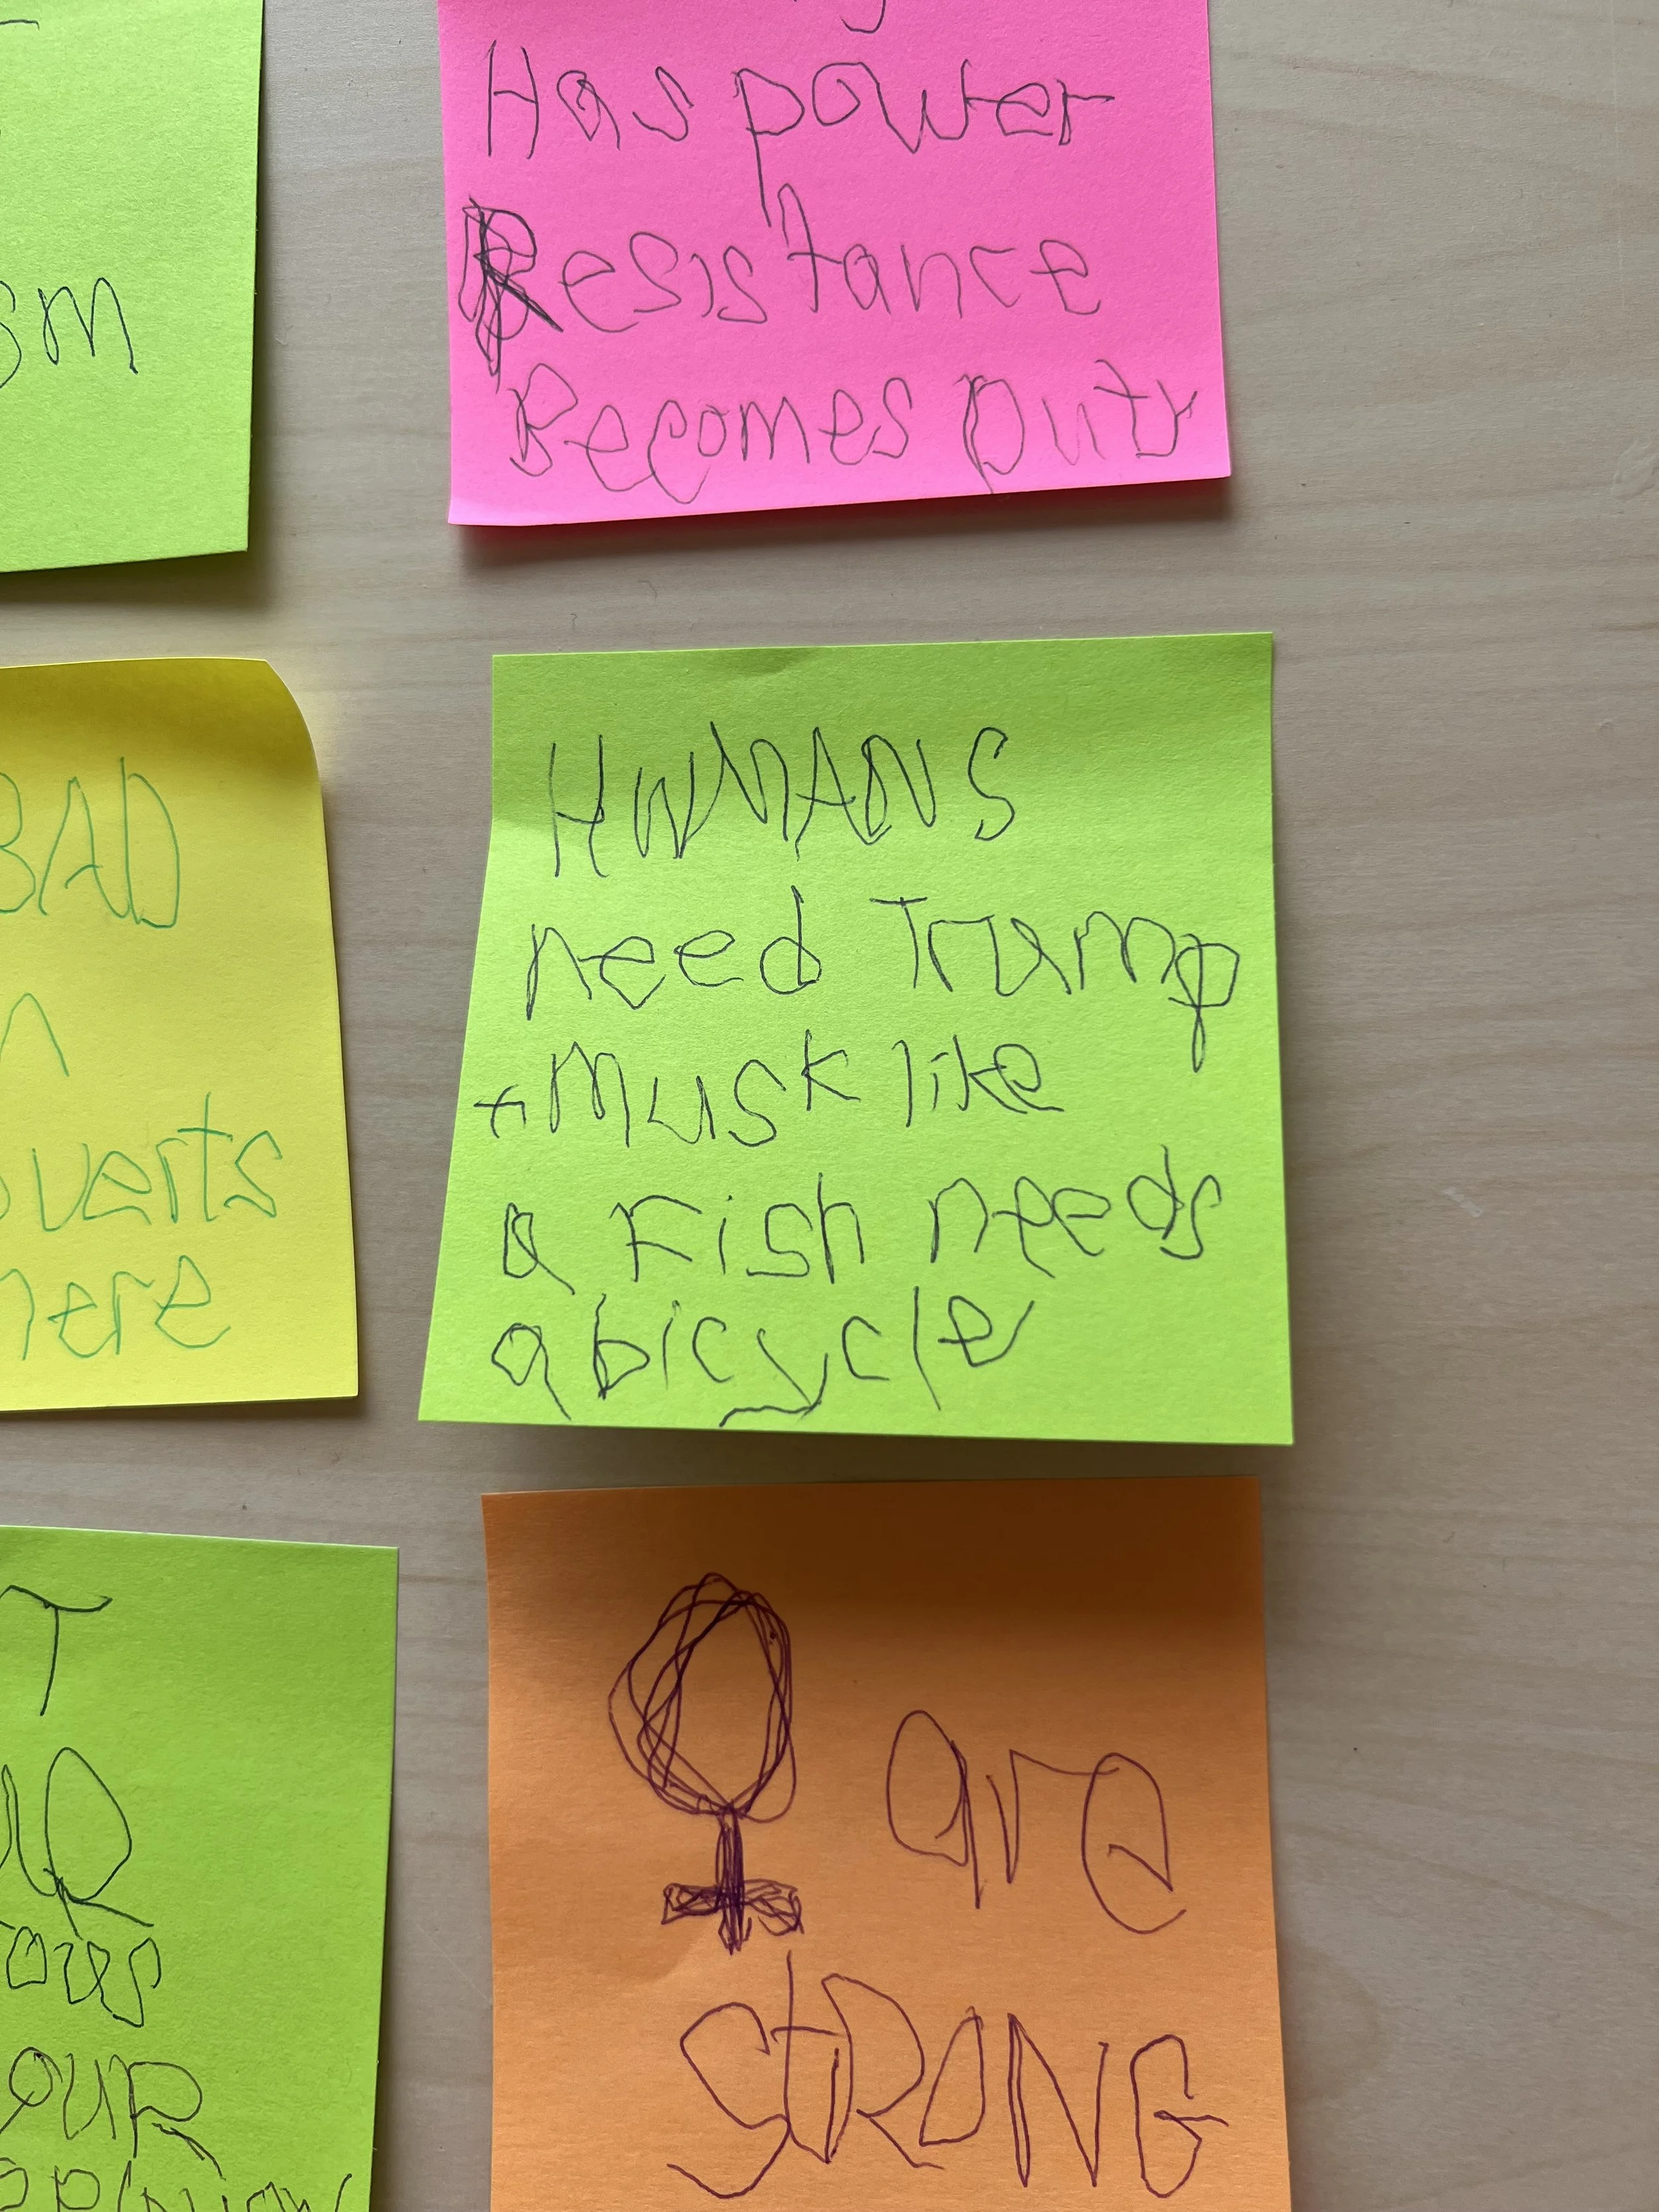 Has power
Resistance
Becomes Duty
HUMANS
need Trump
+ Musk like
a Fish needs
a bicycle
♀ are
StRONG
sm
BAD
verts
here
T
OUR